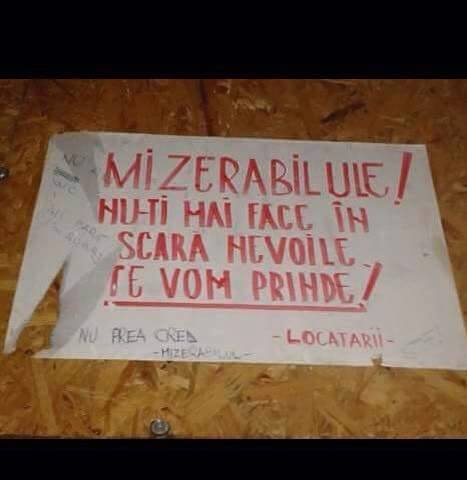 MIZERABILULE!
NU-TI MAI FACE ÎN
SCARĂ NEVOILE
TE VOM PRINDE!
- LOCATARII -
NU PREA CRED
- MIZERABILUL -
NU
WC